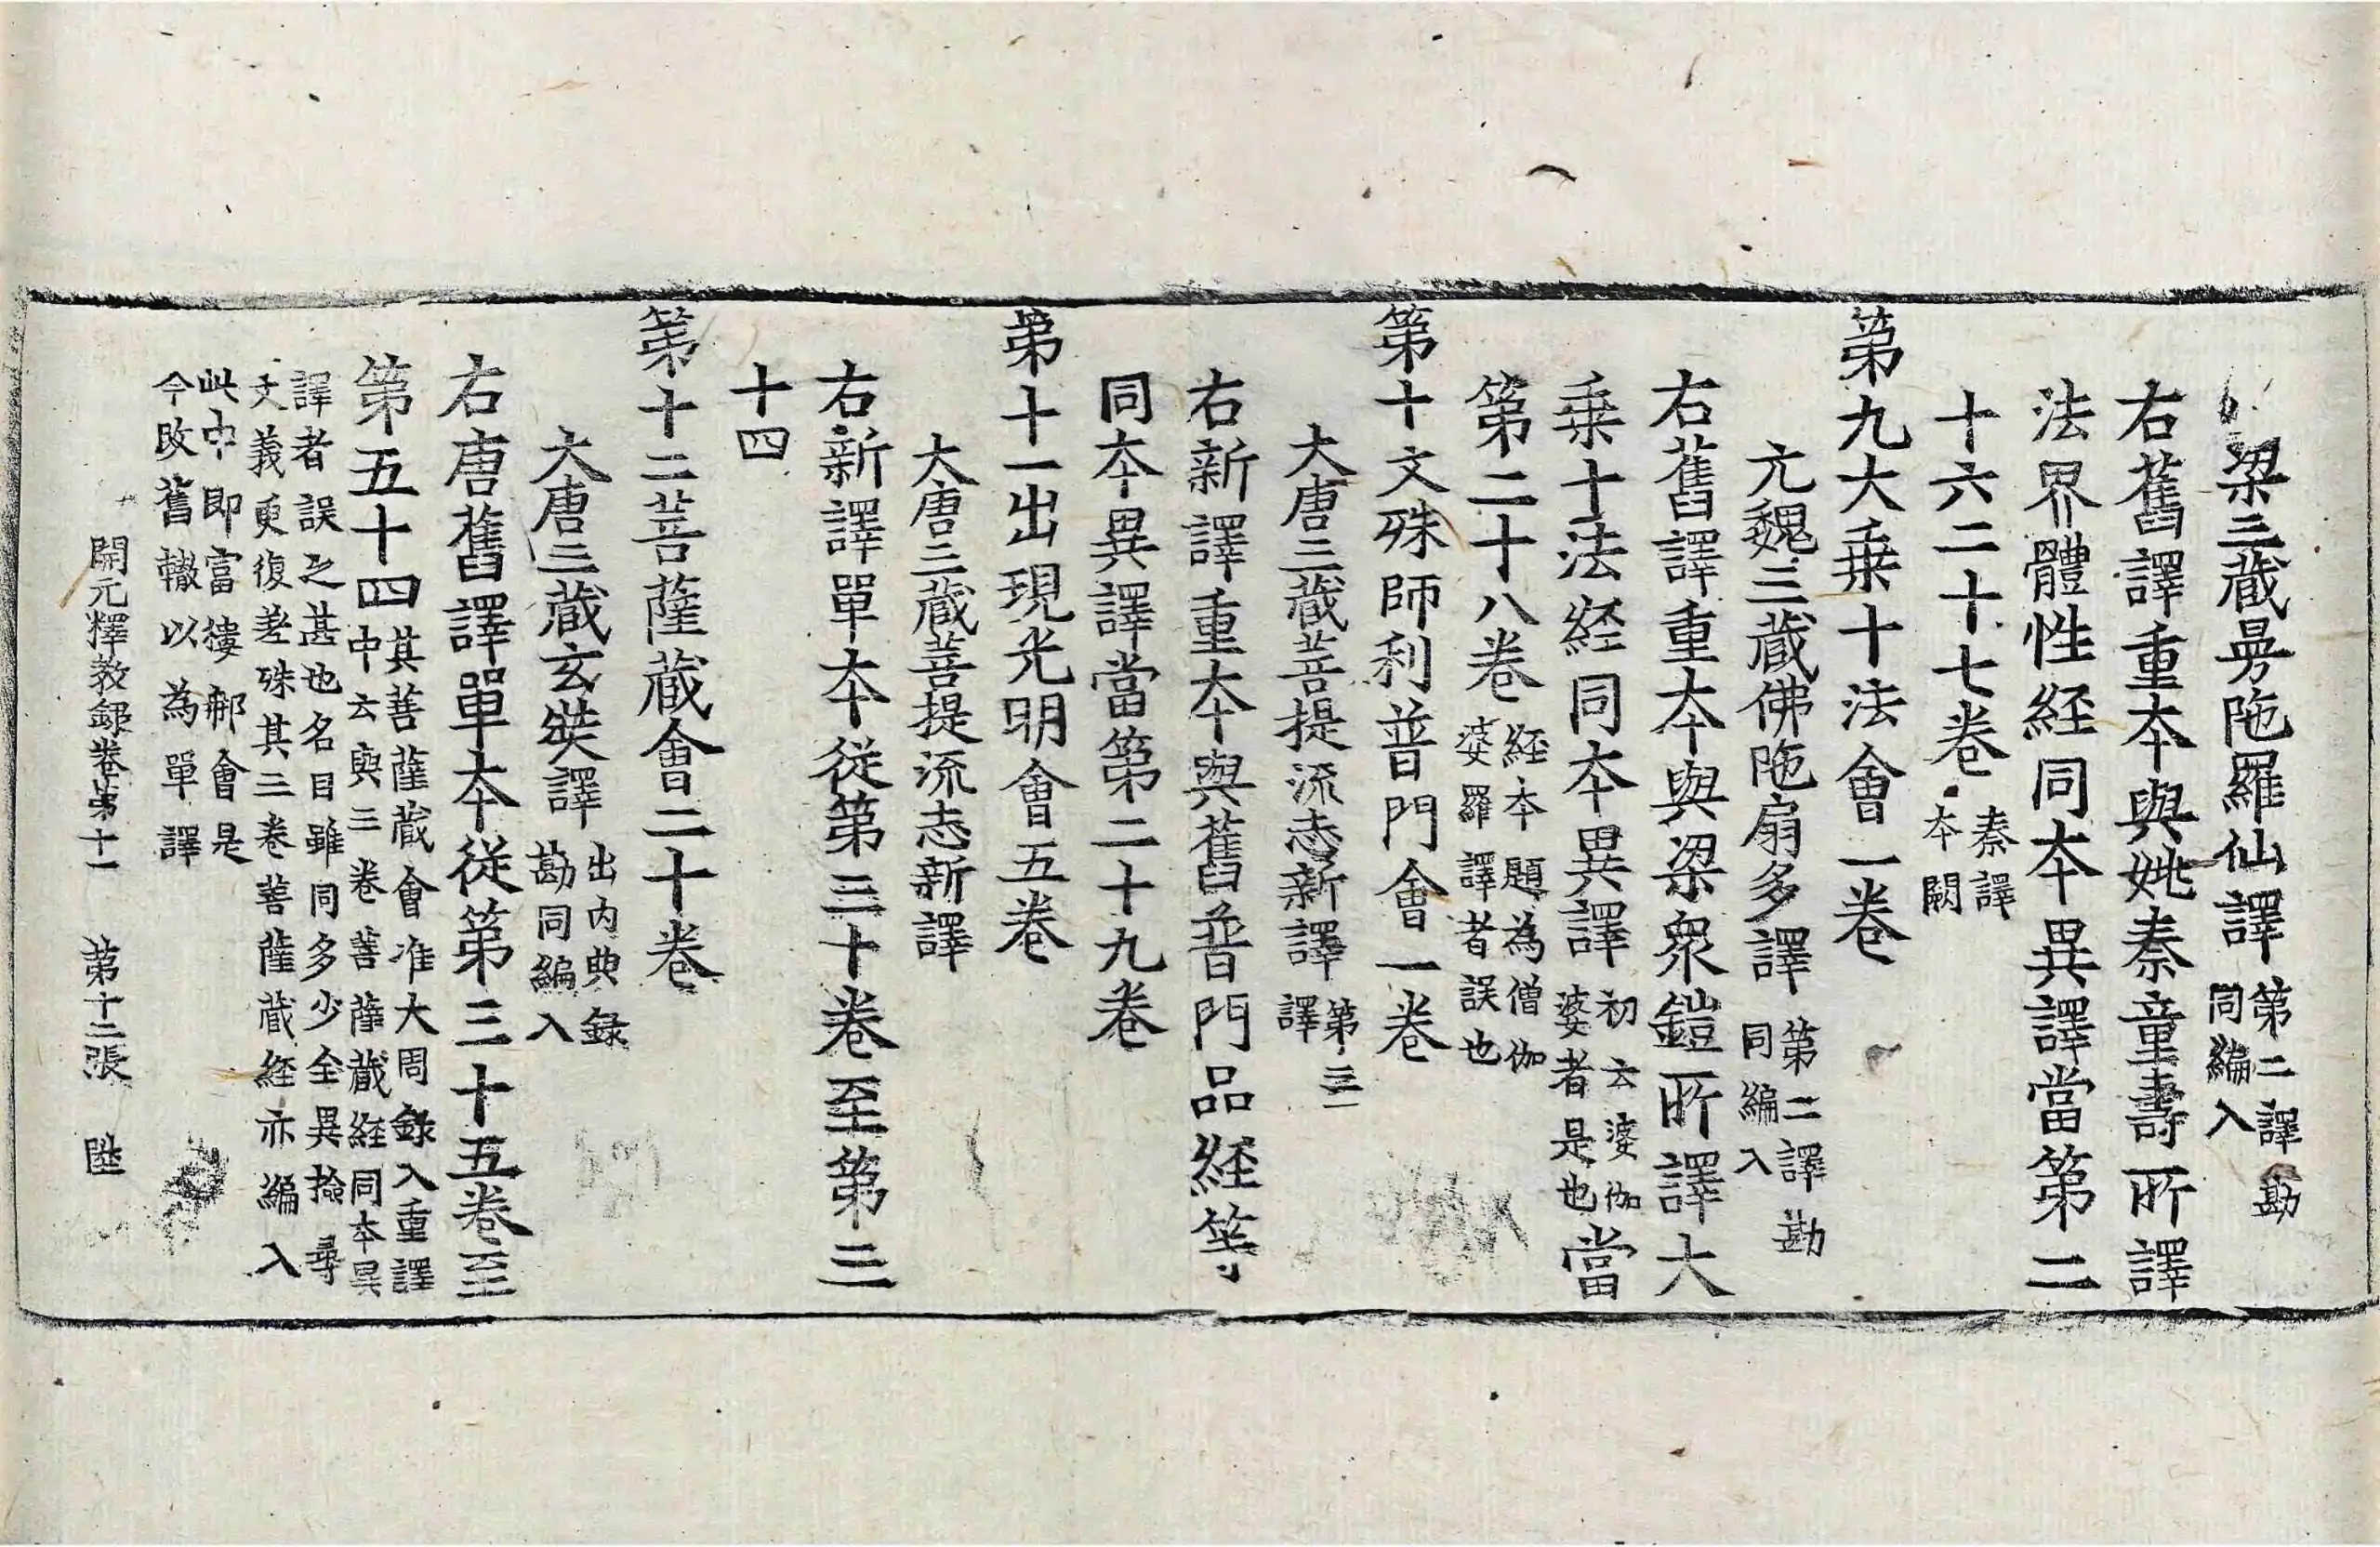 梁三藏曼陁羅仙譯第二譯勘
同編入
右舊譯重夲與姚秦童壽所譯
法界體性経同夲異譯當第二
十六二十七卷秦譯
夲闕
第九大乗十法會一卷
元魏三藏佛陁扇多譯第二譯勘
同編入
右舊譯重夲與梁衆鎧所譯大
乗十法経同夲異譯初云婆伽
婆者是也當
第二十八卷経夲題為僧伽
婆羅譯者誤也
第十文殊師利普門會一卷
大唐三藏菩提流志新譯第三
譯
右新譯重夲與舊普門品経等
同夲異譯當第二十九卷
第十一出現光明會五卷
大唐三藏菩提流志新譯
右新譯單夲從第三十卷至第三
十四
第十二菩薩藏會二十卷
大唐三藏玄奘譯出内典録
勘同編入
右唐舊譯單夲從第三十五卷至
第五十四其菩薩藏會准大周録入重譯
中云與三卷菩薩藏経同夲異
譯者誤之甚也名目雖同多少全異撿尋
文義更復差殊其三卷菩薩藏経亦編入
此中即當樓郍會是
今改舊轍以為單譯
開元釋教録卷第十一　第十二張